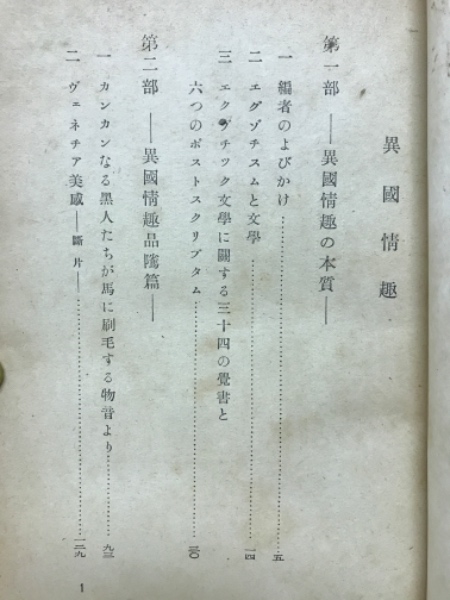 異國情趣
第一部 ――異國情趣の本質――
一 編者のよびかけ……………………………五
二 エグゾチスムと文學……………………………一四
三 エクゾチック文學に關する三十四の覺書と
六つのポストスクリプタム……………………………三〇
第二部 ――異國情趣品隲篇――
一 カンカンなる黑人たちが馬に刷毛する物音より……………九三
二 ヴェネチア美感――斷片――……………………一二九
1